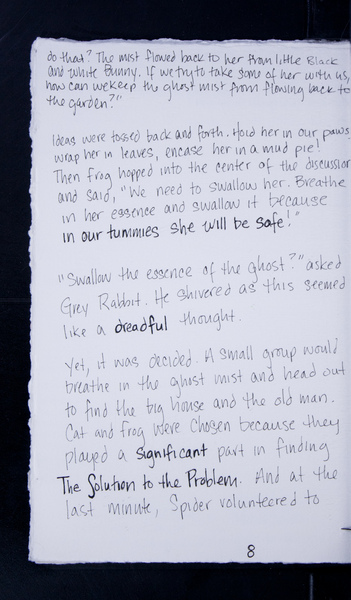 do that? The mist flowed back to her from little Black
and white Bunny. If we try to take some of her with us,
how can we keep the ghost mist from flowing back to
the garden?"
Ideas were tossed back and forth. Hold her in our paws,
wrap her in leaves, encase her in a mud pie!
Then frog hopped into the center of the discussion
and said, "We need to swallow her. Breathe
in her essence and swallow it because
in our tummies she will be safe!"
"Swallow the essence of the ghost?" asked
Grey Rabbit. He shivered as this seemed
like a dreadful thought.
Yet, it was decided. A small group would
breathe in the ghost mist and head out
to find the big house and the old man.
Cat and frog were chosen because they
played a significant part in finding
The Solution to the Problem. And at the
last minute, Spider volunteered to
8